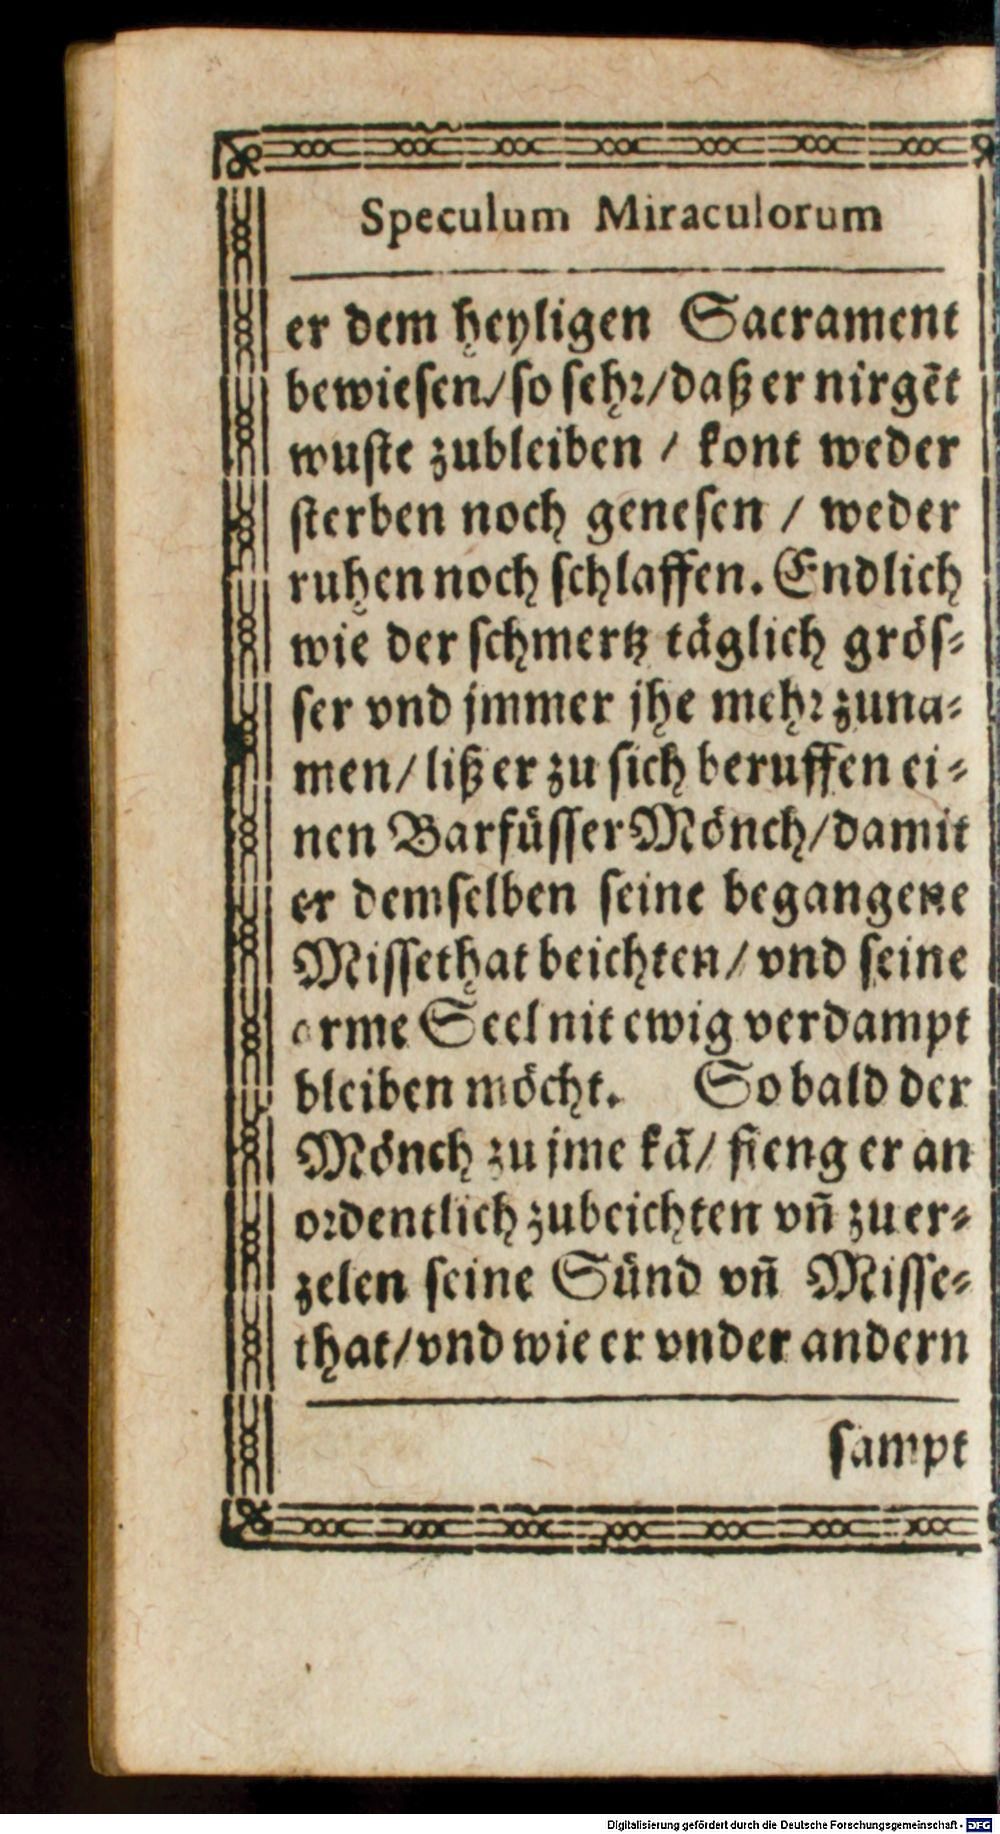 Speculum Miraculorum
er dem heyligen Sacrament
bewiesen/so sehr/daß er nirgẽt
wuste zubleiben / kont weder
sterben noch genesen / weder
ruhen noch schlaffen. Endlich
wie der schmertz täglich grös-
ser vnd jmmer jhe mehr zuna-
men/ lißer zu sich beruffen ei-
nen Barfüsser Mönch/damit
er demselben seine begangene
Missethat beichten/ vnd seine
arme Seel nit ewig verdampt
bleiben möcht. So bald der
Mönch zu jme kã/ fieng er an
ordentlich zubeichten vñ zu er-
zelen seine Sünd vñ Misse-
that/vnd wie er vnder andern
sampt
Digitalisierung gefördert durch die Deutsche Forschungsgemeinschaft - DFG